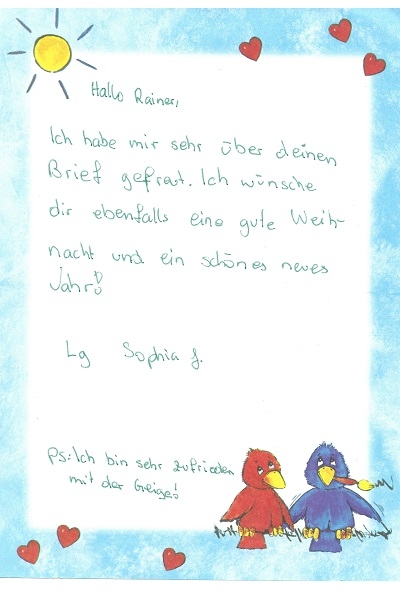 Hallo Rainer,
Ich habe mir sehr über deinen
Brief gefreut. Ich wünsche
dir ebenfalls eine gute Weih-
nacht und ein schönes neues
Jahr!
Lg Sophia J.
PS: Ich bin sehr zufrieden
mit der Geige!